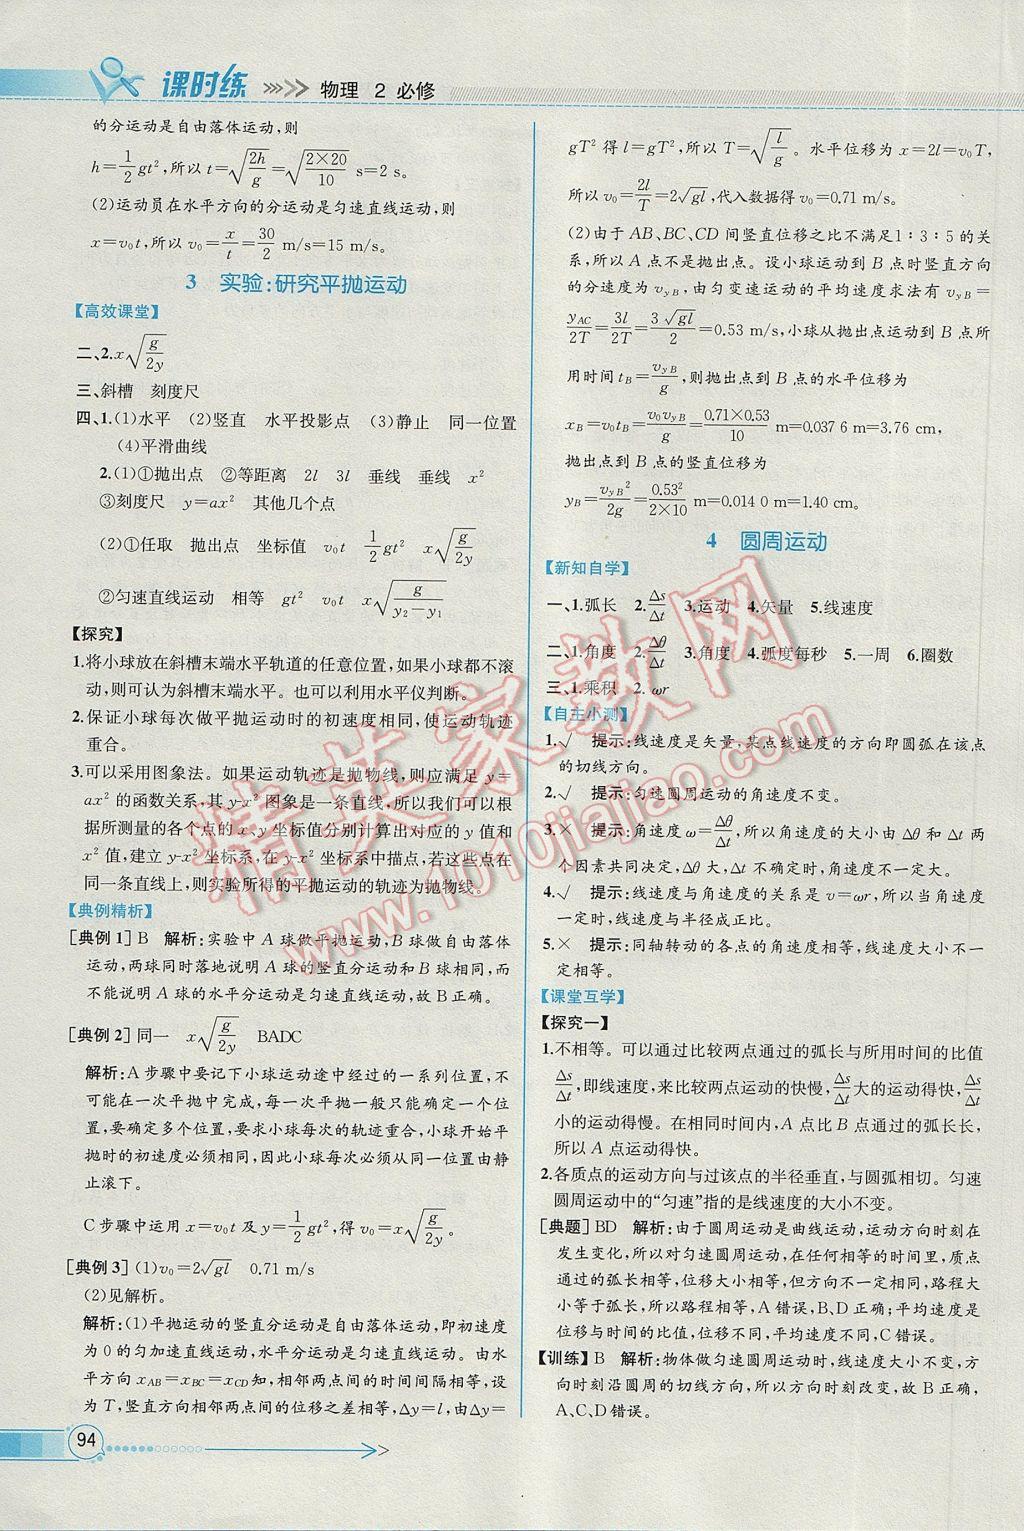 课时练 物理 2 必修
的分运动是自由落体运动,则
h=\frac{1}{2}gt²,所以 t=\sqrt{\frac{2h}{g}}=\sqrt{\frac{2×20}{10}} s=2 s。
(2)运动员在水平方向的分运动是匀速直线运动,则
x=v₀t,所以 v₀=\frac{x}{t}=\frac{30}{2} m/s=15 m/s。
3 实验:研究平抛运动
【高效课堂】
二、2.x\sqrt{\frac{g}{2y}}
三、斜槽 刻度尺
四、1.(1)水平 (2)竖直 水平投影点 (3)静止 同一位置
(4)平滑曲线
2.(1)①抛出点 ②等距离 2l 3l 垂线 垂线 x²
③刻度尺 y=ax² 其他几个点
(2)①任取 抛出点 坐标值 v₀t \frac{1}{2}gt² x\sqrt{\frac{g}{2y}}
②匀速直线运动 相等 gt² v₀t x\sqrt{\frac{g}{y₂-y₁}}
【探究】
1.将小球放在斜槽末端水平轨道的任意位置,如果小球都不滚
动,则可认为斜槽末端水平。也可以利用水平仪判断。
2.保证小球每次做平抛运动时的初速度相同,使运动轨迹
重合。
3.可以采用图象法。如果运动轨迹是抛物线,则应满足 y=
ax² 的函数关系,其 y-x² 图象是一条直线,所以我们可以根
据所测量的各个点的 x、y 坐标值分别计算出对应的 y 值和
x² 值,建立 y-x² 坐标系,在 y-x² 坐标系中描点,若这些点在
同一条直线上,则实验所得的平抛运动的轨迹为抛物线。
【典例精析】
[典例 1] B 解析:实验中 A 球做平抛运动,B 球做自由落体
运动,两球同时落地说明 A 球的竖直分运动和 B 球相同,而
不能说明 A 球的水平分运动是匀速直线运动,故 B 正确。
[典例 2] 同一 x\sqrt{\frac{g}{2y}} BADC
解析:A 步骤中要记下小球运动途中经过的一系列位置,不
可能在一次平抛中完成,每一次平抛一般只能确定一个位
置,要确定多个位置,要求小球每次的轨迹重合,小球开始平
抛时的初速度必须相同,因此小球每次必须从同一位置由静
止滚下。
C 步骤中运用 x=v₀t 及 y=\frac{1}{2}gt²,得 v₀=x\sqrt{\frac{g}{2y}}。
[典例 3] (1)v₀=2\sqrt{gl} 0.71 m/s
(2)见解析。
解析:(1)平抛运动的竖直分运动是自由落体运动,即初速度
为 0 的匀加速直线运动,水平分运动是匀速直线运动。由水
平方向 x_{AB}=x_{BC}=x_{CD}知,相邻两点间的时间间隔相等,设
为 T,竖直方向相邻两点间的位移之差相等,Δy=l,由 Δy=
gT² 得 l=gT²,所以 T=\sqrt{\frac{l}{g}}。水平位移为 x=2l=v₀T,
所以 v₀=\frac{2l}{T}=2\sqrt{gl},代入数据得 v₀=0.71 m/s。
(2)由于 AB、BC、CD 间竖直位移之比不满足1∶3∶5 的关
系,所以 A 点不是抛出点。设小球运动到 B 点时竖直方向
的分速度为 v_{yB},由匀变速运动的平均速度求法有 v_{yB}=
\frac{y_{AC}}{2T}=\frac{3l}{2T}=\frac{3\sqrt{gl}}{2}=0.53 m/s,小球从抛出点运动到 B 点所
用时间 t_B=\frac{v_{yB}}{g},则抛出点到 B 点的水平位移为
x_B=v₀t_B=\frac{v₀v_{yB}}{g}=\frac{0.71×0.53}{10} m=0.037 6 m=3.76 cm,
抛出点到 B 点的竖直位移为
y_B=\frac{v_{yB}²}{2g}=\frac{0.53²}{2×10} m=0.014 0 m=1.40 cm。
4 圆周运动
【新知自学】
一、1.弧长 2.\frac{Δs}{Δt} 3.运动 4.矢量 5.线速度
二、1.角度 2.\frac{Δθ}{Δt} 3.角度 4.弧度每秒 5.一周 6.圈数
三、1.乘积 2.ωr
【自主小测】
1.√ 提示:线速度是矢量,某点线速度的方向即圆弧在该点
的切线方向。
2.√ 提示:匀速圆周运动的角速度不变。
3.× 提示:角速度 ω=\frac{Δθ}{Δt},所以角速度的大小由 Δθ 和 Δt 两
个因素共同决定,Δθ 大,Δt 不确定时,角速度不一定大。
4.√ 提示:线速度与角速度的关系是 v=ωr,所以当角速度
一定时,线速度与半径成正比。
5.× 提示:同轴转动的各点的角速度相等,线速度大小不一
定相等。
【课堂互学】
【探究一】
1.不相等。可以通过比较两点通过的弧长与所用时间的比值
\frac{Δs}{Δt},即线速度,来比较两点运动的快慢,\frac{Δs}{Δt}大的运动得快,\frac{Δs}{Δt}
小的运动得慢。在相同时间内,A 点比 B 点通过的弧长长,
所以 A 点运动得快。
2.各质点的运动方向与过该点的半径垂直,与圆弧相切。匀速
圆周运动中的“匀速”指的是线速度的大小不变。
[典题] BD 解析:由于圆周运动是曲线运动,运动方向时刻在
发生变化,所以对匀速圆周运动,在任何相等的时间里,质点
通过的弧长相等,位移大小相等,但方向不一定相同,路程大
小等于弧长,所以路程相等,A 错误,B、D 正确;平均速度是
位移与时间的比值,位移不同,平均速度不同,C 错误。
【训练】 B 解析:物体做匀速圆周运动时,线速度大小不变,方
向时刻沿圆周的切线方向,所以方向时刻改变,故 B 正确,
A、C、D 错误。
94
精英家教网
www.1010jiajiao.com